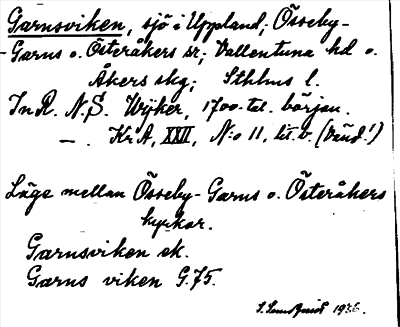 Garnsviken, sjö i Uppland; Össeby-
-Garns o. Österåkers sr; Vallentuna hd o.
Åkers skg; Sthlms l.
In R. N.S. Wijker, 1700-tal. början.
—. KrA, XXII, N:o 11, lit. b. (Vänd!)
Läge mellan Össeby-Garns o. Österåkers
kyrkor.
Garnsviken ek.
Garns viken G.75.
S. Lundquist 1936.